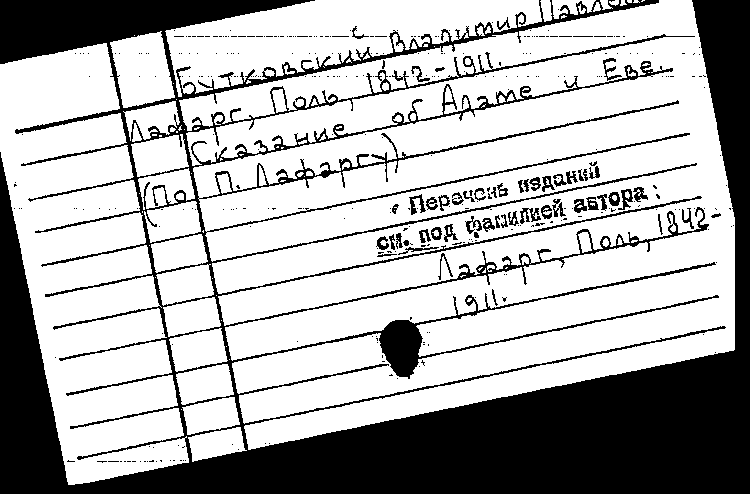 Бутковский, Владимир
Лафарг, Поль, 1842-1911.
Сказание об Адаме и Еве.
(По П. Лафаргу).
Перечень изданий
см. под фамилией автора:
Лафарг, Поль, 1842-
1911.